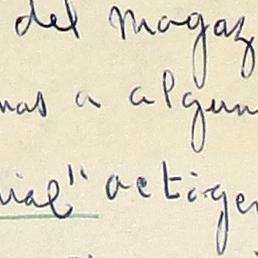 del magaz
mas a algun
ial" actige